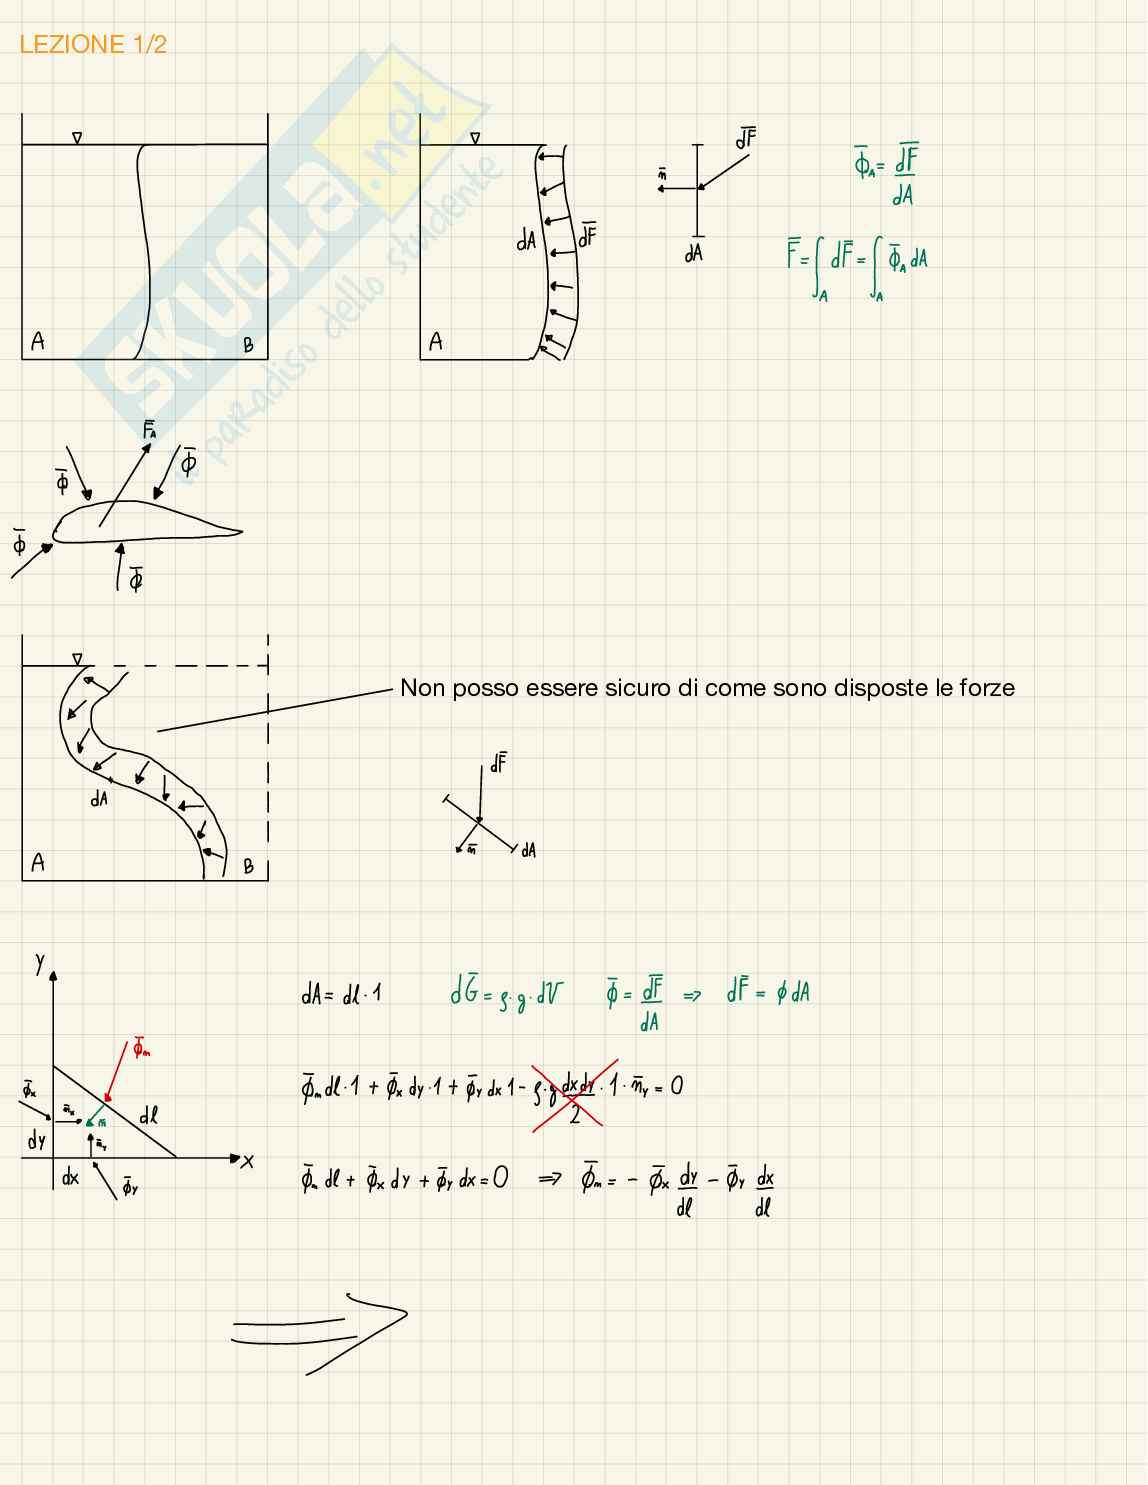 LEZIONE 1/2
SKUOLA.net
il paradiso dello studente
A B
A dA dF̅
n̅ dF̅ dA
Φ̅_A = dF̅/dA
F̅ = ∫_A dF̅ = ∫_A Φ̅_A dA
F̅_A
Φ̅ Φ̅
Φ̅ Φ̅
Non posso essere sicuro di come sono disposte le forze
dA
A B
dF̅
n̅ dA
y
dA = dl · 1 dG̅ = ρ · g · dV Φ̅ = dF̅/dA => dF̅ = ϕ dA
Φ̅_n
Φ̅_x n̅_x n dl
dy n̅_y
x
dx Φ̅_y
Φ̅_n dl · 1 + Φ̅_x dy · 1 + Φ̅_y dx 1 - ρ · g dx dy/2 · 1 · n̅_y = 0
Φ̅_n dl + Φ̅_x dy + Φ̅_y dx = 0 => Φ̅_n = - Φ̅_x dy/dl - Φ̅_y dx/dl